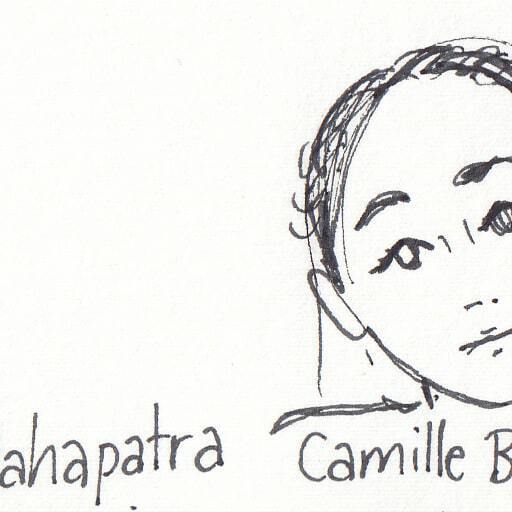 ahapatra Camille B